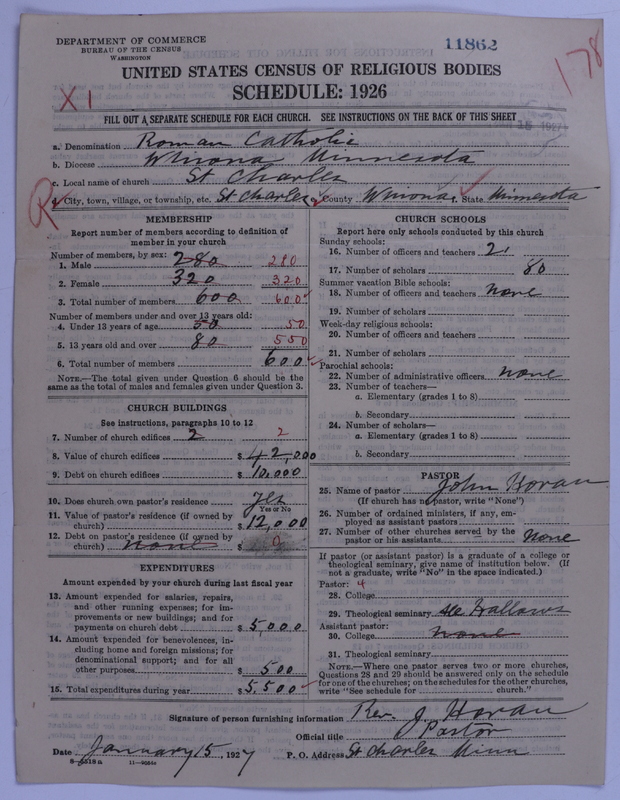 DEPARTMENT OF COMMERCE
BUREAU OF THE CENSUS
WASHINGTON
11862
178
X 1
UNITED STATES CENSUS OF RELIGIOUS BODIES
SCHEDULE: 1926
FILL OUT A SEPARATE SCHEDULE FOR EACH CHURCH. SEE INSTRUCTIONS ON THE BACK OF THIS SHEET
a. Denomination Roman Catholic
b. Diocese Winona Minnesota
c. Local name of church St Charles
R
d. City, town, village, or township, etc. St Charles County Winona State Minnesota
MEMBERSHIP
Report number of members according to definition of member in your church
Number of members, by sex:
1. Male 280 280
2. Female 320 320
3. Total number of members 600 600
Number of members under and over 13 years old:
4. Under 13 years of age 50 50
5. 13 years old and over 80 550
6. Total number of members 600
NOTE.—The total given under Question 6 should be the same as the total of males and females given under Question 3.
CHURCH BUILDINGS
See instructions, paragraphs 10 to 12
7. Number of church edifices 2 2
8. Value of church edifices $ 42,000
9. Debt on church edifices $ 10,000
10. Does church own pastor's residence Yes
Yes or No
11. Value of pastor's residence (if owned by church) $ 12,000
12. Debt on pastor's residence (if owned by church) none $ 0
EXPENDITURES
Amount expended by your church during last fiscal year
13. Amount expended for salaries, repairs, and other running expenses; for improvements or new buildings; and for payments on church debt $ 5,000
14. Amount expended for benevolences, including home and foreign missions; for denominational support; and for all other purposes $ 500
15. Total expenditures during year $ 5,500
CHURCH SCHOOLS
Report here only schools conducted by this church
Sunday schools:
16. Number of officers and teachers 2
17. Number of scholars 80
Summer vacation Bible schools:
18. Number of officers and teachers None
19. Number of scholars
Week-day religious schools:
20. Number of officers and teachers
21. Number of scholars
Parochial schools:
22. Number of administrative officers none
23. Number of teachers—
a. Elementary (grades 1 to 8)
b. Secondary
24. Number of scholars—
a. Elementary (grades 1 to 8)
b. Secondary
PASTOR
25. Name of pastor John Horan
(If church has no pastor, write "None")
26. Number of ordained ministers, if any, employed as assistant pastors
27. Number of other churches served by the pastor or his assistants None
If pastor (or assistant pastor) is a graduate of a college or theological seminary, give name of institution below. (If not a graduate, write "No" in the space indicated.)
Pastor: 4
28. College
29. Theological seminary All Hallows
Assistant pastor:
30. College none
31. Theological seminary
NOTE.—Where one pastor serves two or more churches, Questions 28 and 29 should be answered only on the schedule for one of the churches; on the schedules for the other churches, write "See schedule for church."
Signature of person furnishing information Rev. J Horan
Official title Pastor
Date January 5, 1927 P. O. Address St Charles Minn